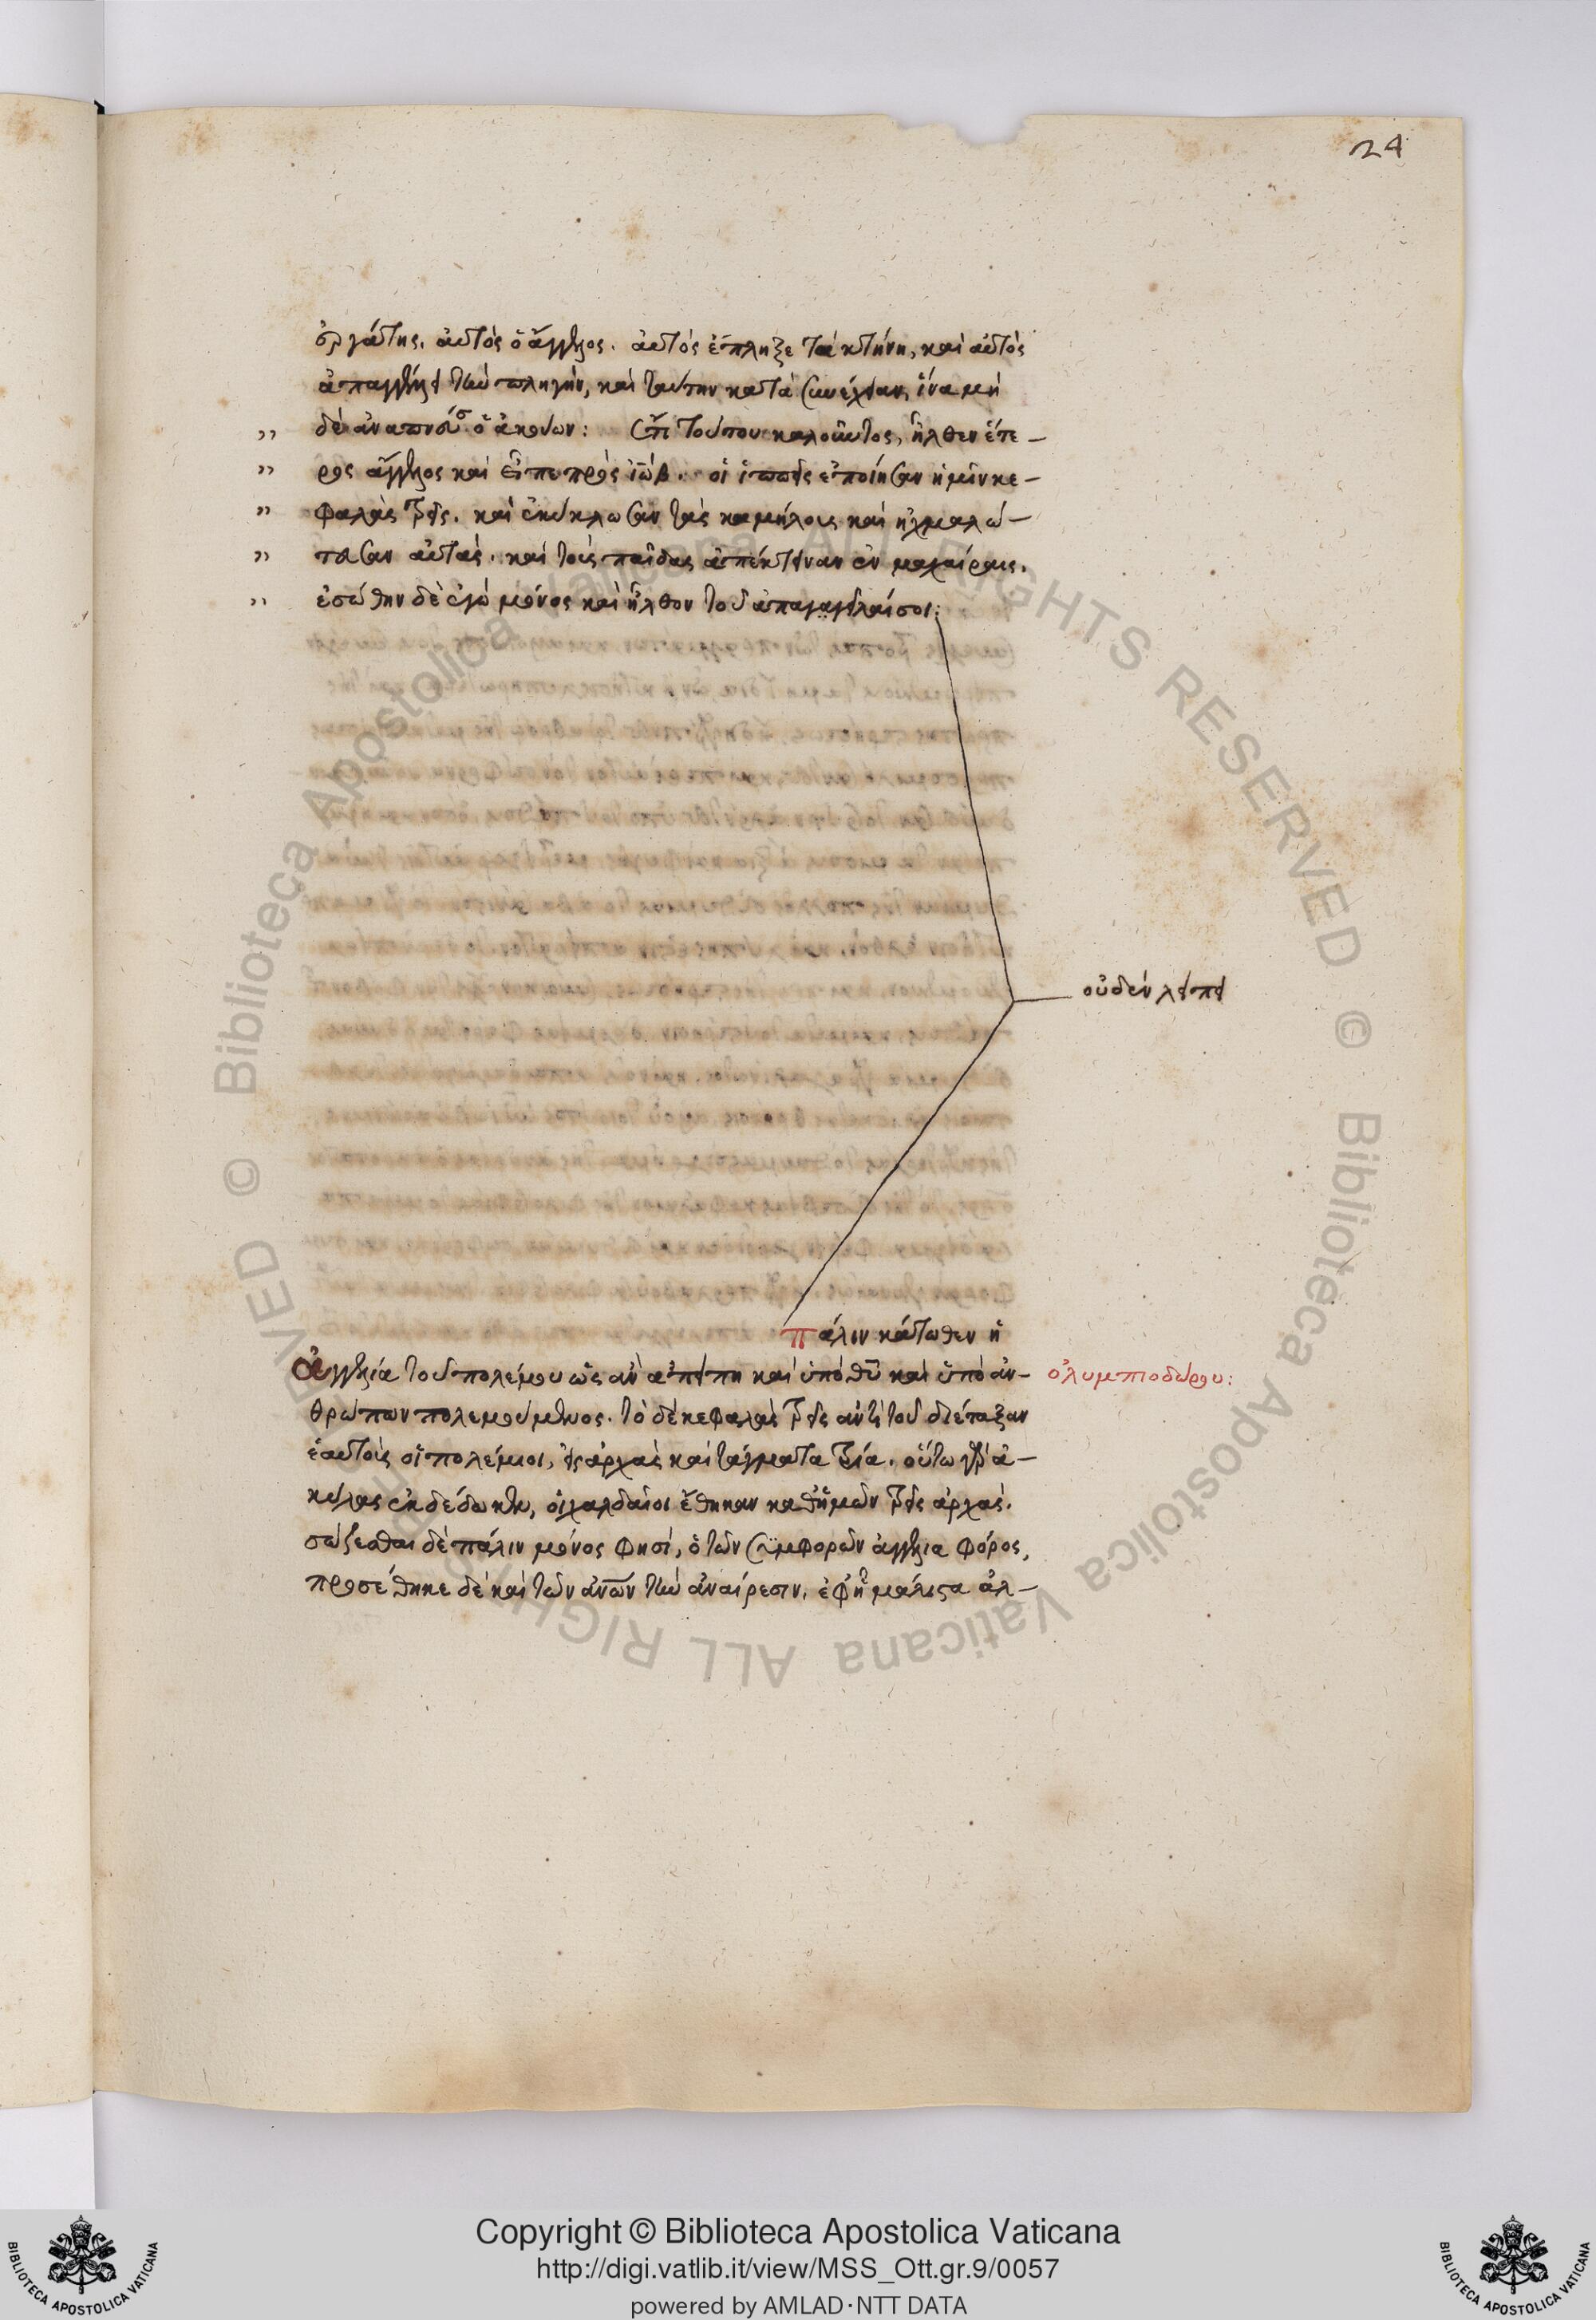 24
ἐργάτης. αὐτὸς ὁ ἄγγελος. αὐτὸς ἔπληξε τὰ κτήνη, καὶ αὐτὸς
ἀπαγγέλει τὴν πληγὴν, καὶ ταύτην κατὰ συνέχειαν, ἵνα μὴ
δὲ ἀναπνεύσῃ ὁ ἀκούων: Ἔτι τούτου λαλοῦντος, ἦλθεν ἕτε–
ρος ἄγγελος καὶ εἶπε πρὸς ἰώβ. οἱ ἱππεῖς ἐποίησαν ἡμῖν κε–
φαλὰς τρεῖς. καὶ ἐκύκλωσαν τὰς καμήλους καὶ ᾐχμαλώ–
τευσαν αὐτὰς. καὶ τοὺς παῖδας ἀπέκτειναν ἐν μαχαίραις.
ἐσώθην δὲ ἐγὼ μόνος καὶ ἦλθον τοῦ ἀπαγγεῖλαί σοι:
οὐδὲν λείπει
πάλιν κάτωθεν ἡ
ἀγγελία τοῦ πολέμου ὡς ἂν αἴπειπη καὶ ὑπὸ θῦ καὶ ὑπὸ ἀν–
ὀλυμπιοδώρου:
θρώπων πολεμούμενος. τὸ δὲ κεφαλὰς τρεῖς ἀντὶ τοῦ διέταξαν
ἑαυτοὺς οἱ πολέμιοι, εἰς ἀρχὰς καὶ τάγματα τρία. οὕτω γὰρ ἀ–
κύλας ἐκδέδωκεν, οἱ χαλδαῖοι ἔθηκαν καθ' ἡμῶν τρεῖς ἀρχὰς.
σώζεσθαι δὲ πάλιν μόνος φησὶ, ὁ τῶν συμφορῶν ἀγγελιαφόρος,
προσέθηκε δὲ καὶ τῶν ἀνῶν τὴν ἀναίρεσιν. ἐφ' ᾗ μάλιστα ἀλ–
Copyright © Biblioteca Apostolica Vaticana
http://digi.vatlib.it/view/MSS_Ott.gr.9/0057
powered by AMLAD·NTT DATA